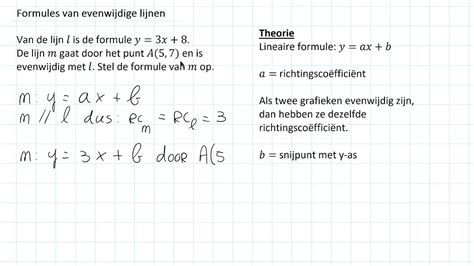 Formules van evenwijdige lijnen
Van de lijn l is de formule y = 3x + 8.
De lijn m gaat door het punt A(5, 7) en is
evenwijdig met l. Stel de formule van m op.
m: y = ax + b
m // l dus: rc_m = rc_l = 3
m: y = 3x + b door A(5
Theorie
Lineaire formule: y = ax + b
a = richtingscoëfficiënt
Als twee grafieken evenwijdig zijn,
dan hebben ze dezelfde
richtingscoëfficiënt.
b = snijpunt met y-as